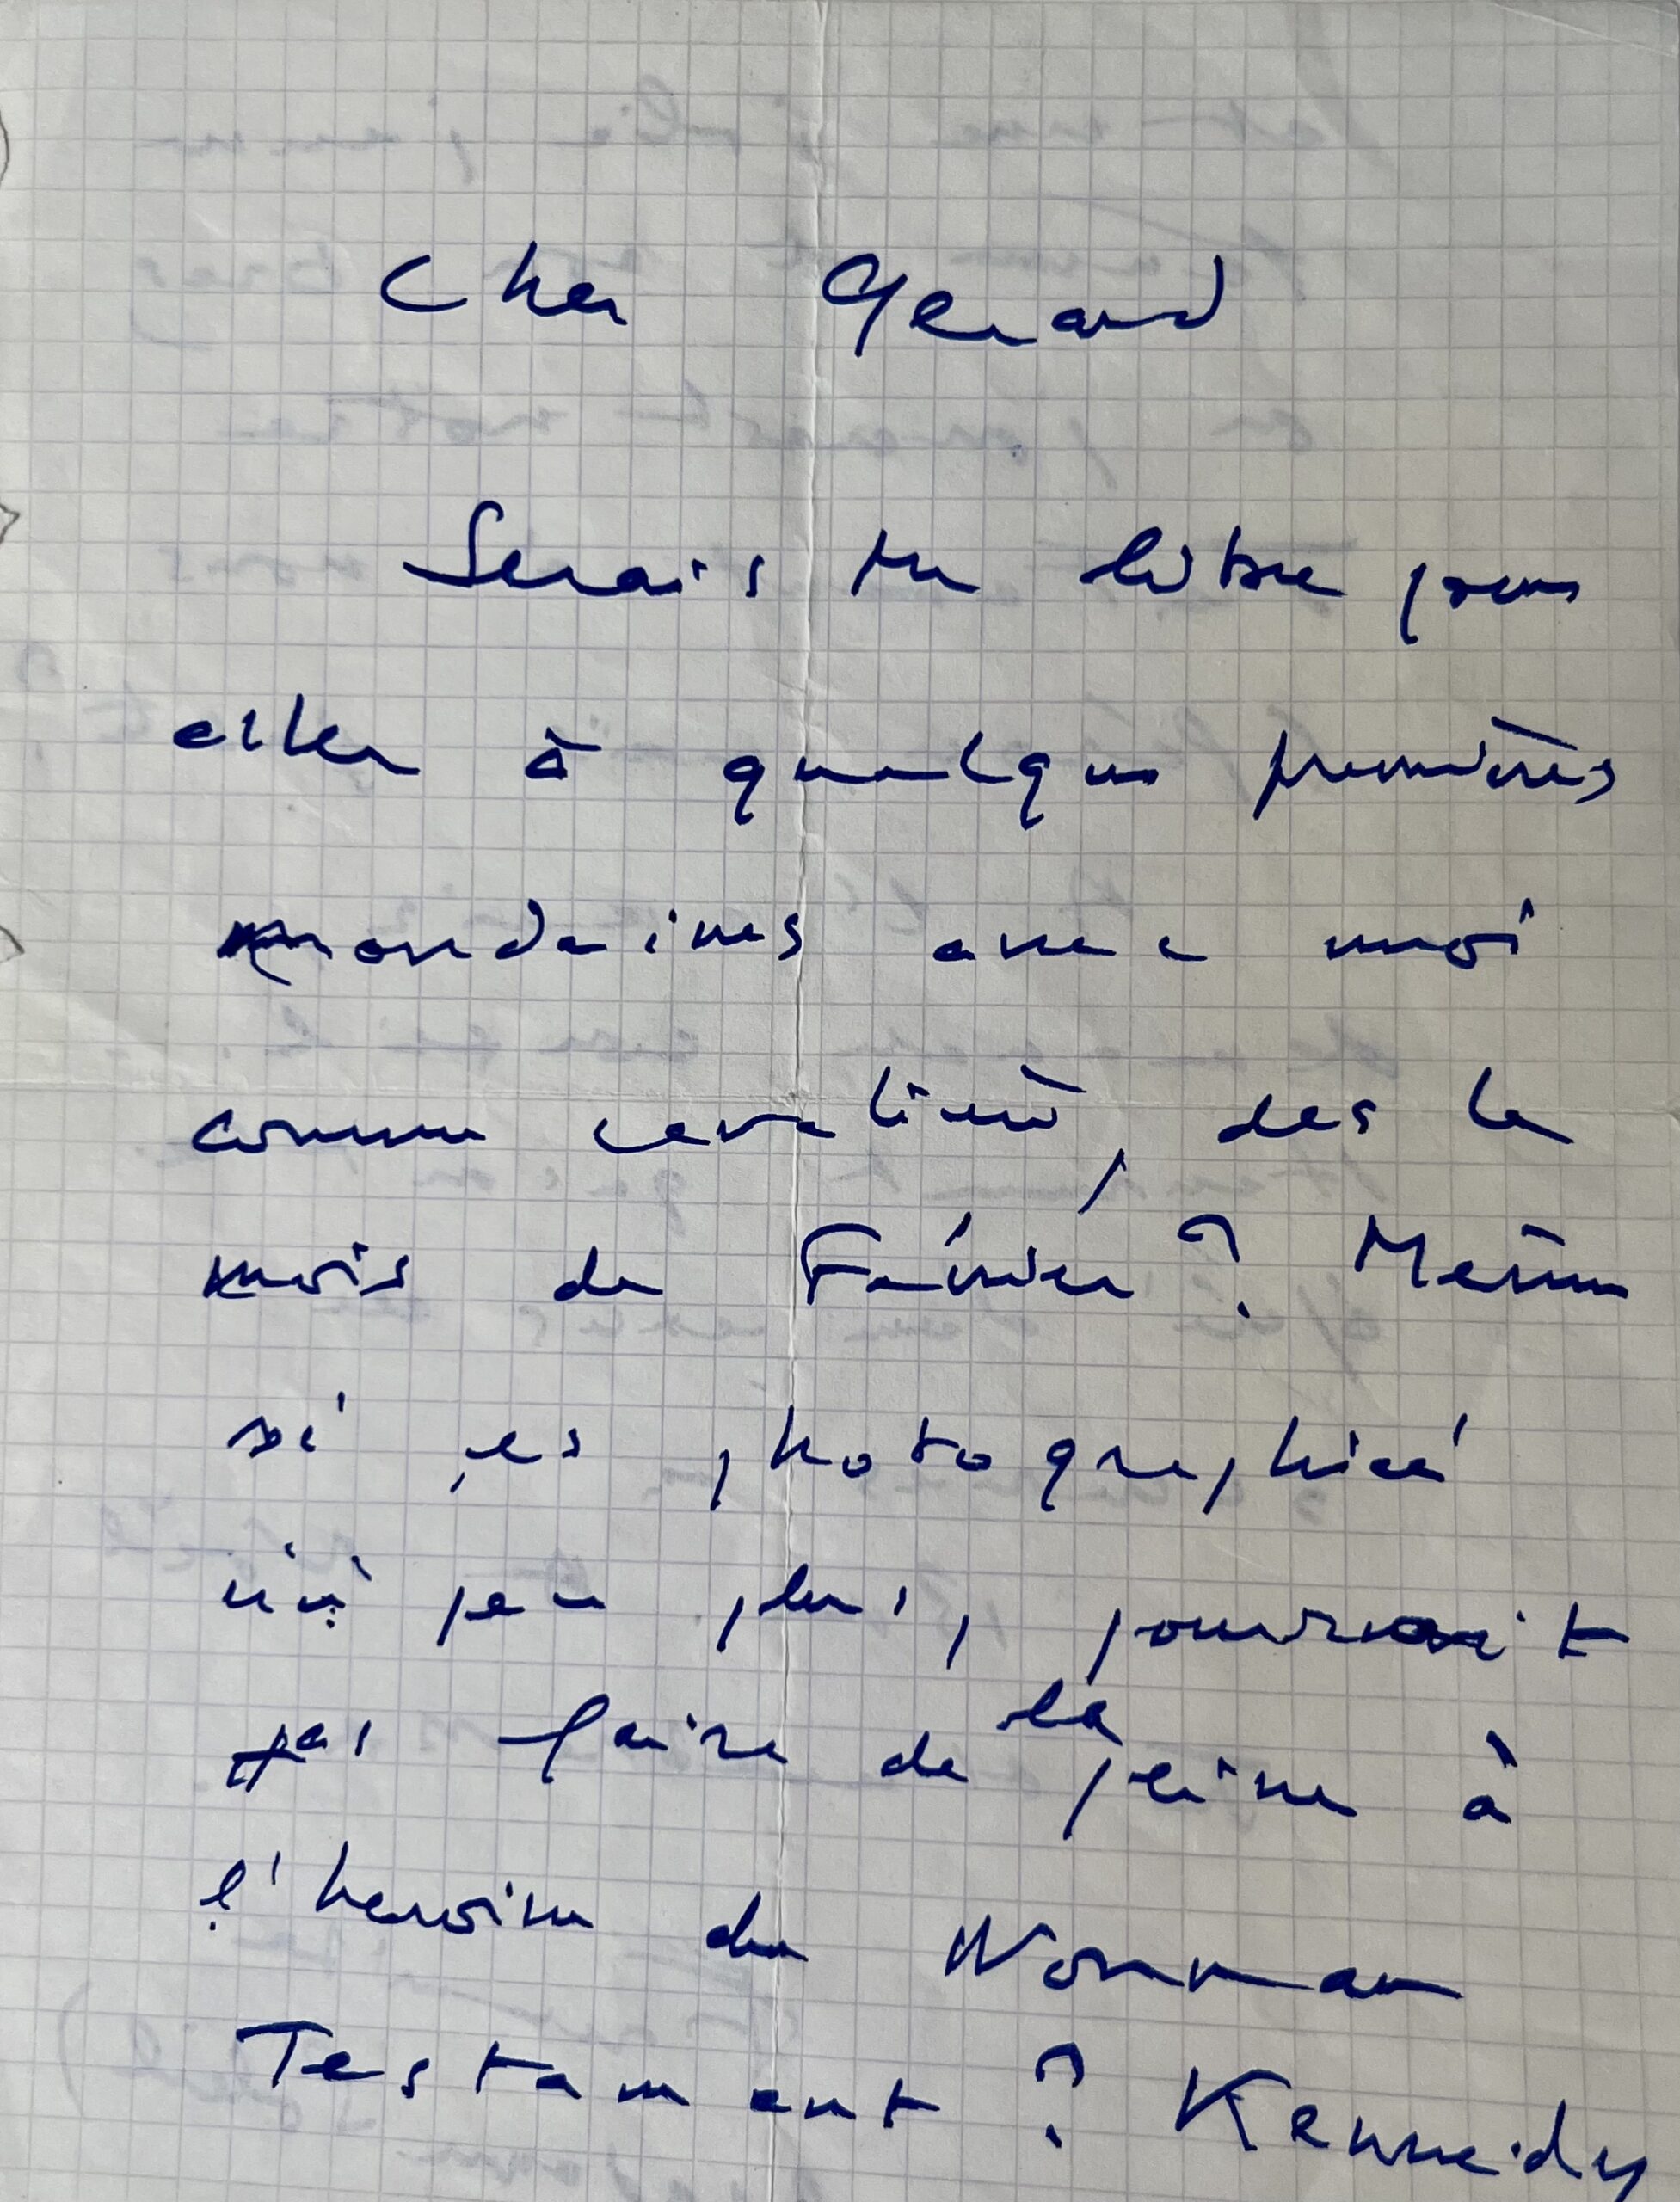 Cher Gerard
Serais tu libre pour
aller à quelques premières
mondaines avec moi
comme cavalière, des le
mois de Février ? Même
si es photographiée
un peu plus, pourrait
pas faire de la peine à
l'heroine du Norman
Testament ? Kennedy